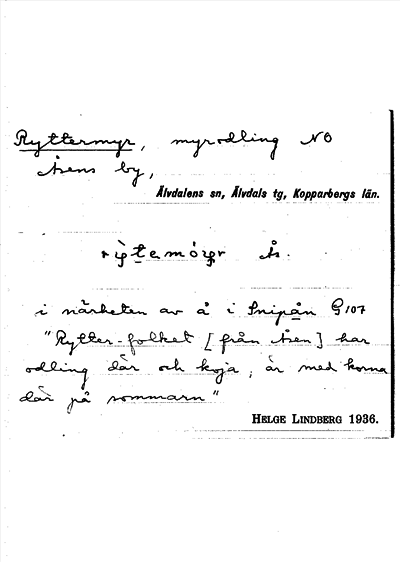 Ryttermyr, myrodling NO
Åsens by,
Älvdalens sn, Älvdals tg, Kopparbergs län.
Ås.
i närheten av å i Snipån G107
"Rytter-folket [från Åsen] har
odling där och koja, är med korna
där på sommarn"
HELGE LINDBERG 1936.